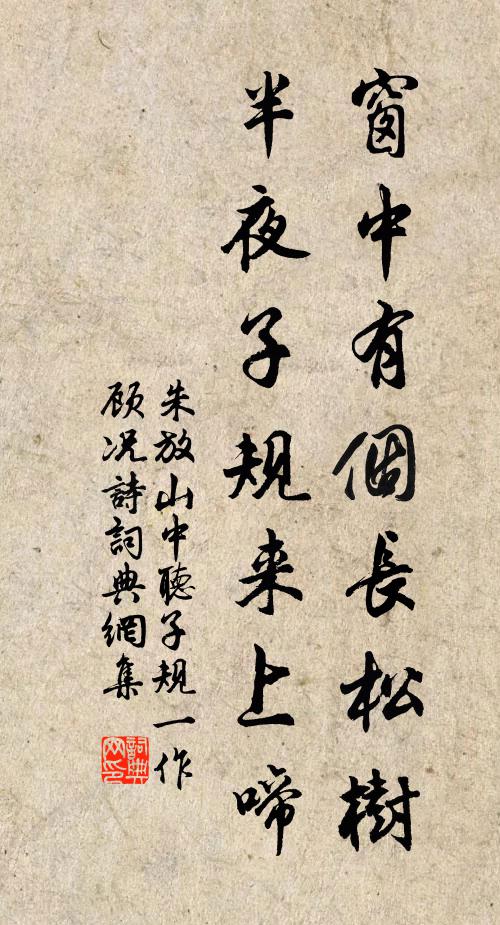 窗中有個長松樹
半夜子規来上啼
朱放山中聽子規一作
顾况詩詞典網集
詞典
网印